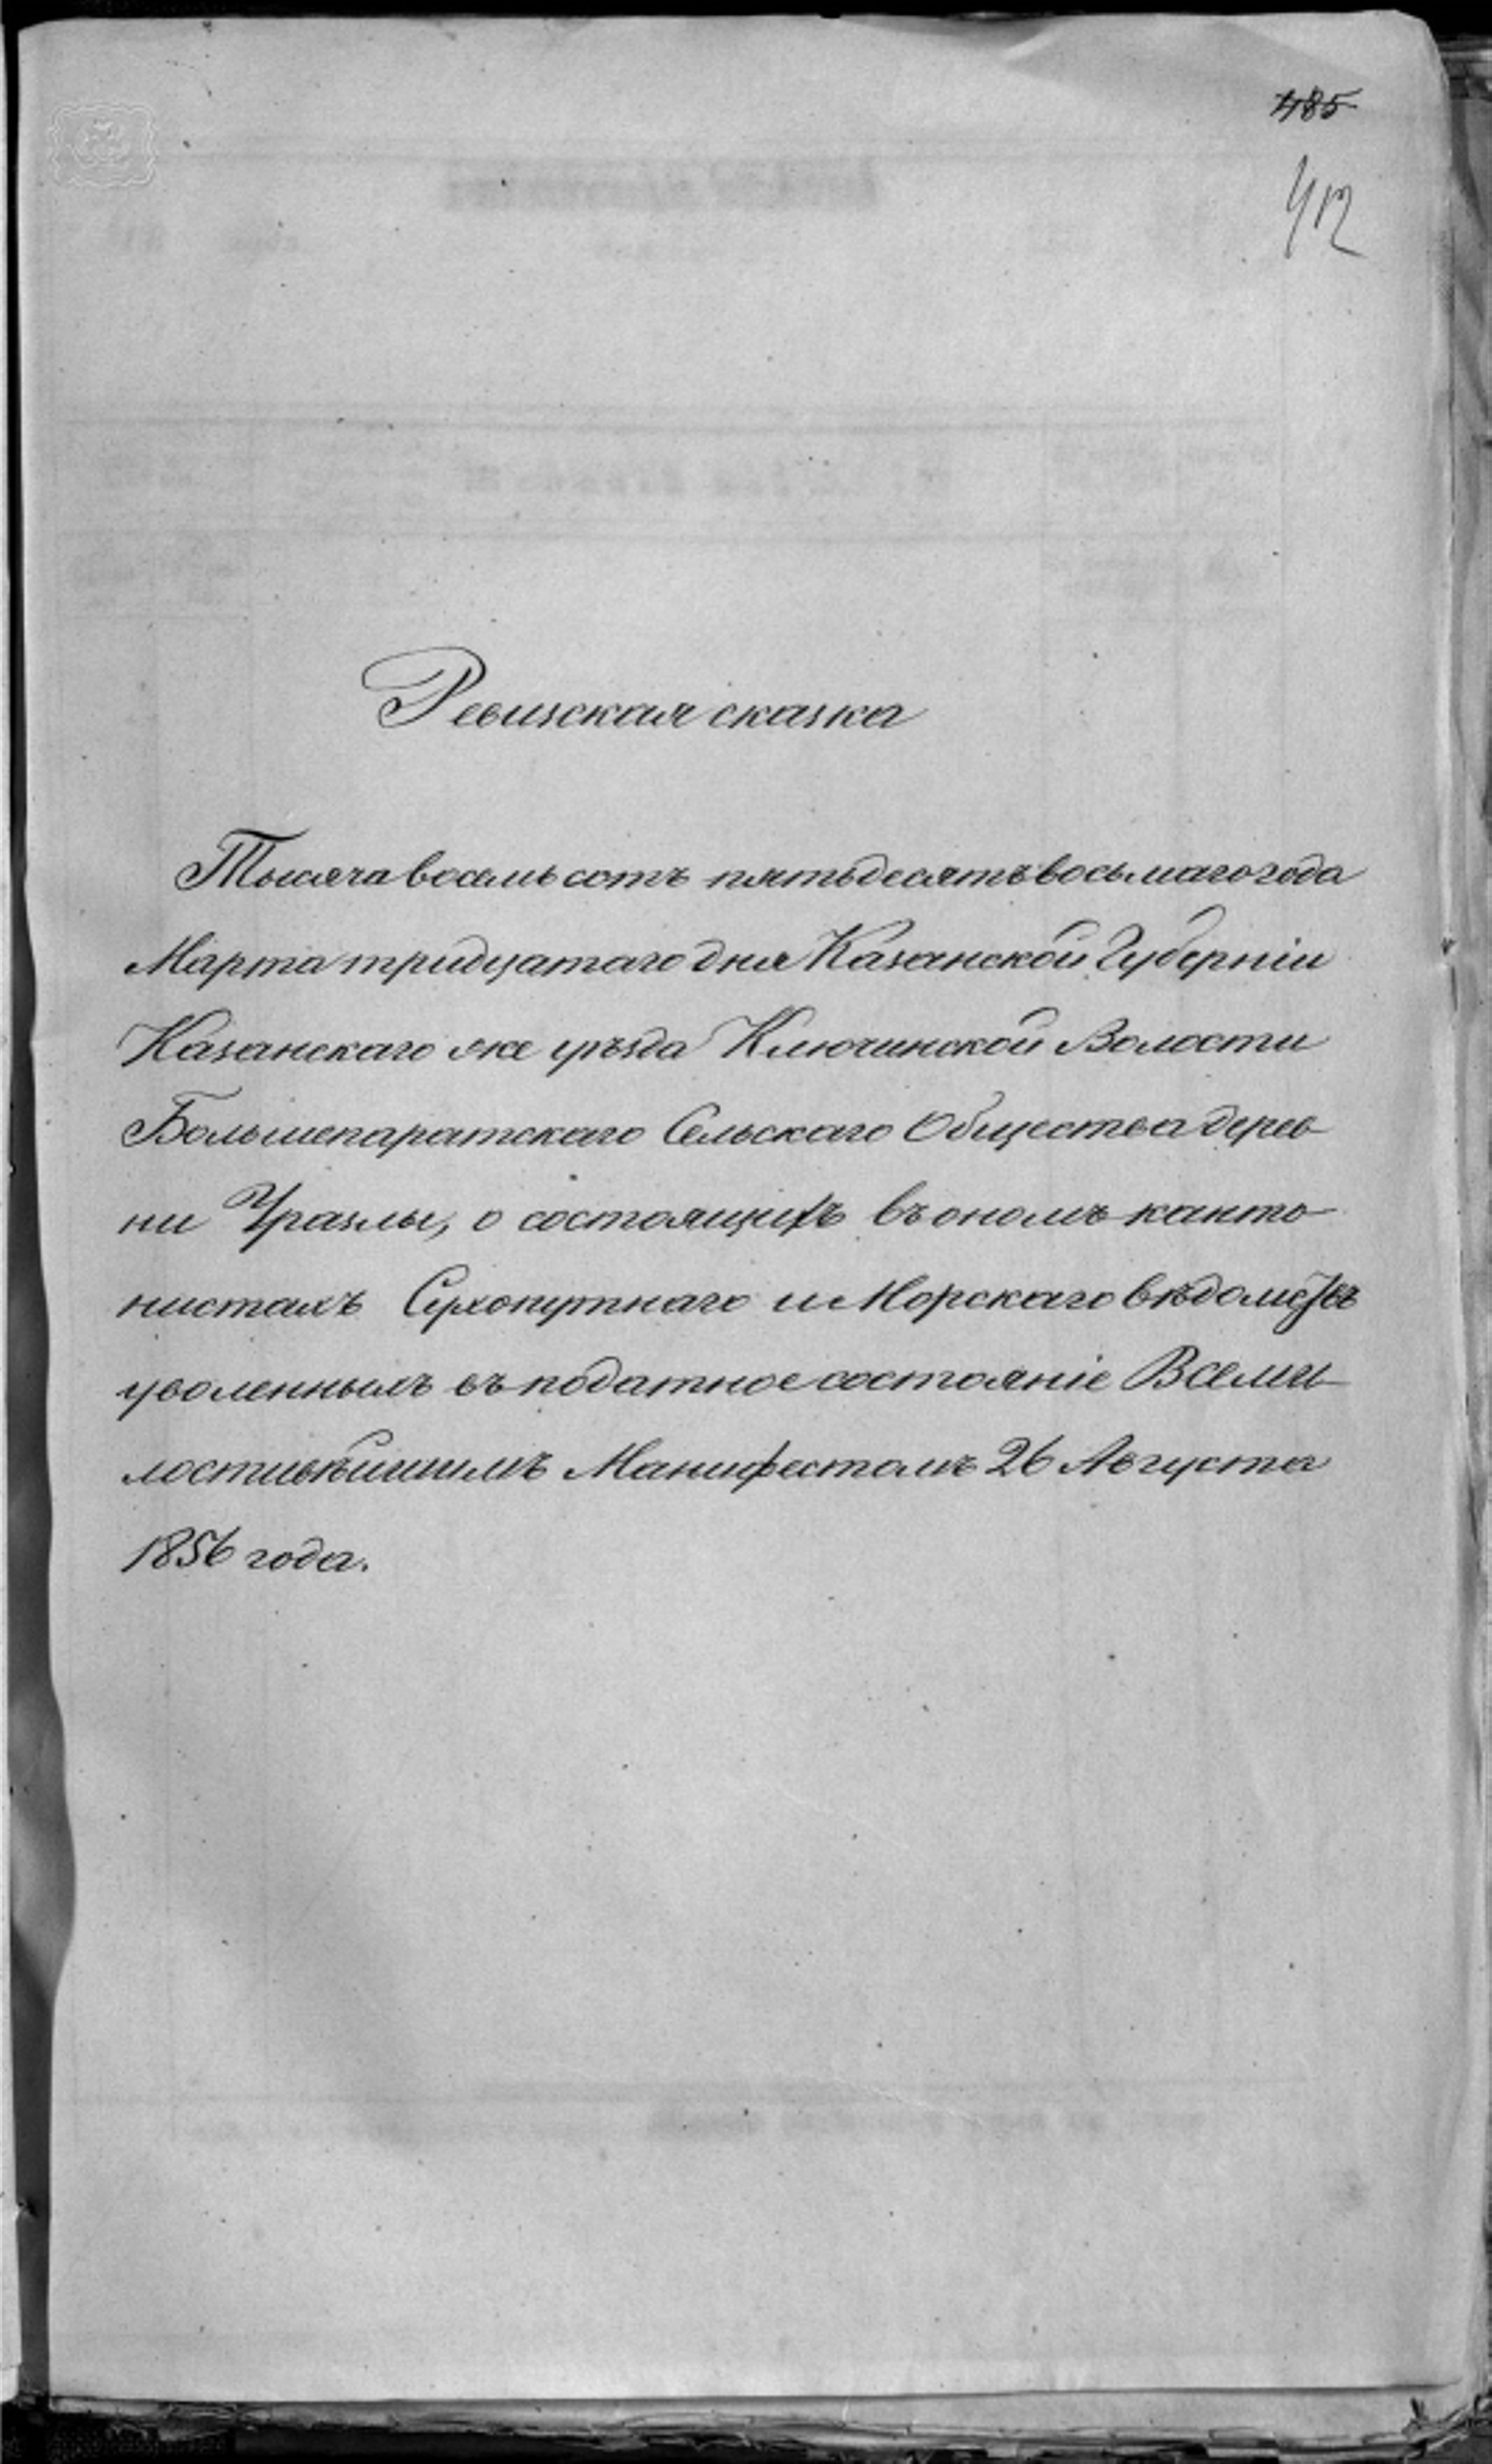 485
412
Ревизская сказка
Тысяча восемь сотъ пятьдесятъ восьмаго года
Марта тридцатаго дня Казанской Губерніи
Казанскаго же уѣзда Ключинской Волости
Большепаратскаго Сельскаго Общества дерев-
ни Уразлы, о состоящихъ въ ономъ канто-
нистахъ Сухопутнаго и Морскаго вѣдомствъ
уволенныхъ въ податное состояніе Всеми-
лостивѣйшимъ Манифестомъ 26 Августа
1856 года.